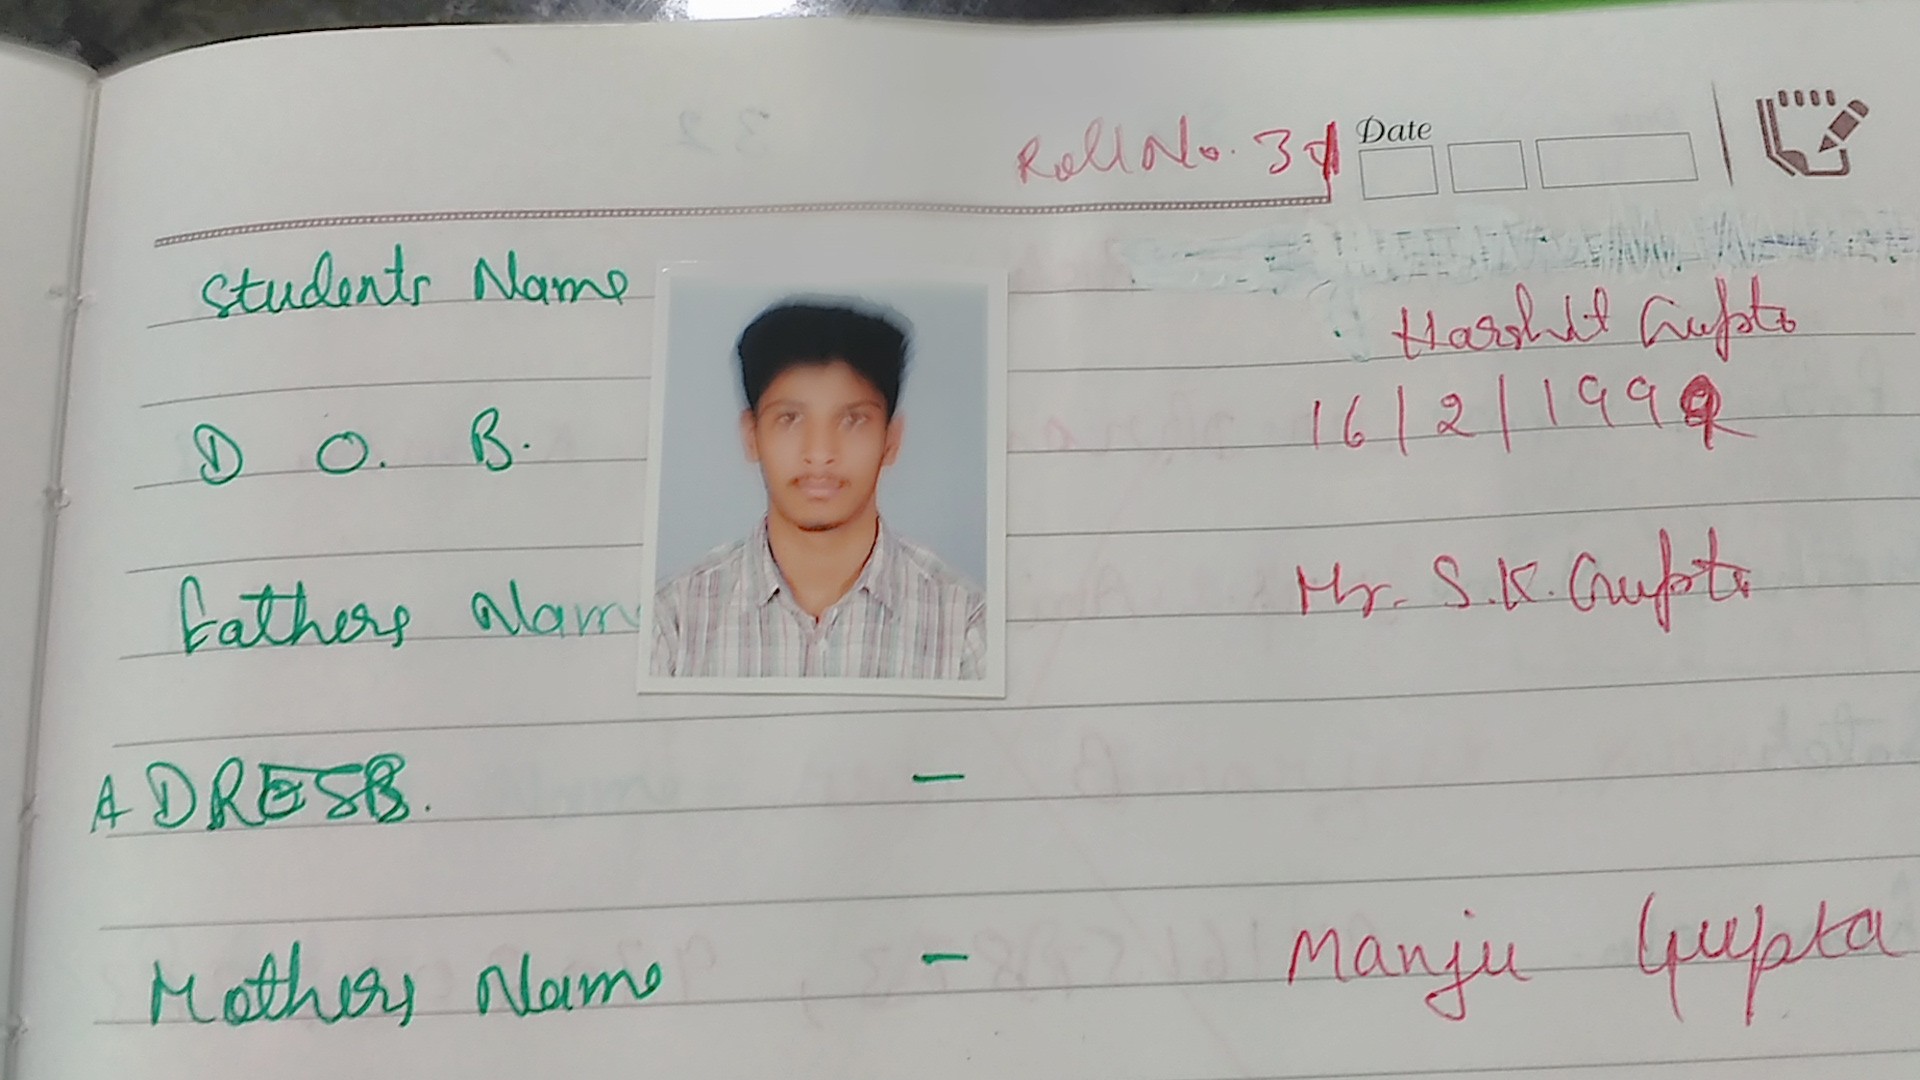 Roll No. 31 Date
Students Name Harshit Gupta
D O. B. 16/2/1999
Fathers Nam Mr. S.K. Gupta
ADRESS. -
Mothers Name - Manju Gupta